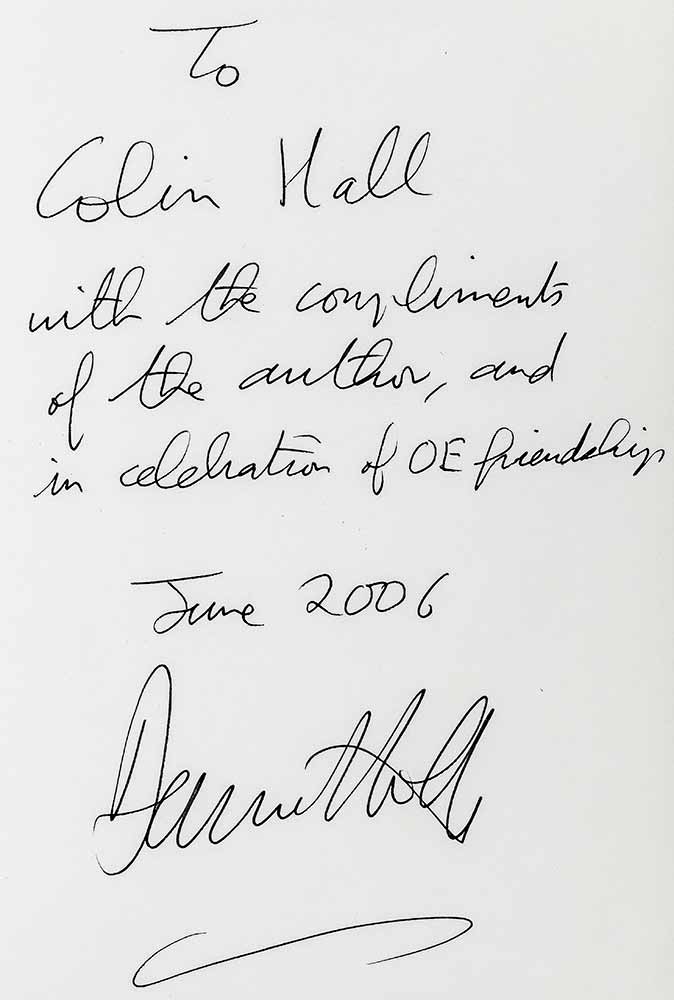 To
Colin Hall
with the compliments
of the author, and
in celebration of OE friendship
June 2006